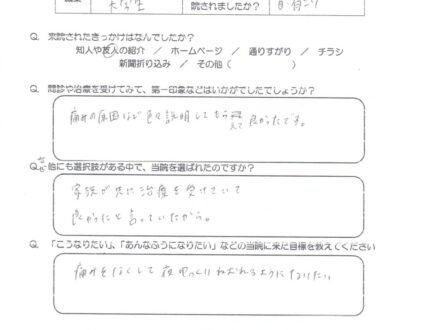 大学生
院されましたか？
首・肩こり
Q. 来院されたきっかけはなんでしたか？
知人や友人の紹介 ／ ホームページ ／ 通りすがり ／ チラシ
新聞折り込み ／ その他（ ）
Q. 問診や治療を受けてみて、第一印象などはいかがでしたでしょうか？
痛みの原因など色々説明してもらえて良かったです。
Q.なぜ他にも選択肢がある中で、当院を選ばれたのですか？
家族が先に治療を受けていて
良かったと言っていたから。
Q. 「こうなりたい」、「あんなふうになりたい」などの当院に来た目標を教えてください
痛みをなくして夜ゆっくりねむれるようになりたい